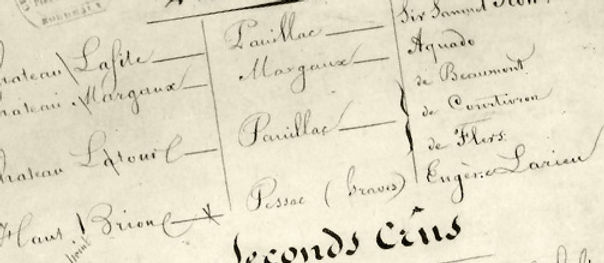 BORDEAUX
Chateau Lafite Pauillac Sir Samuel Scott
Chateau Margaux Margaux Aguado
de Beaumont
Chateau Latour Pauillac de Courtivron
de Flers
Haut Brion Pessac (Graves) Eugène Larieu
Seconds Crûs